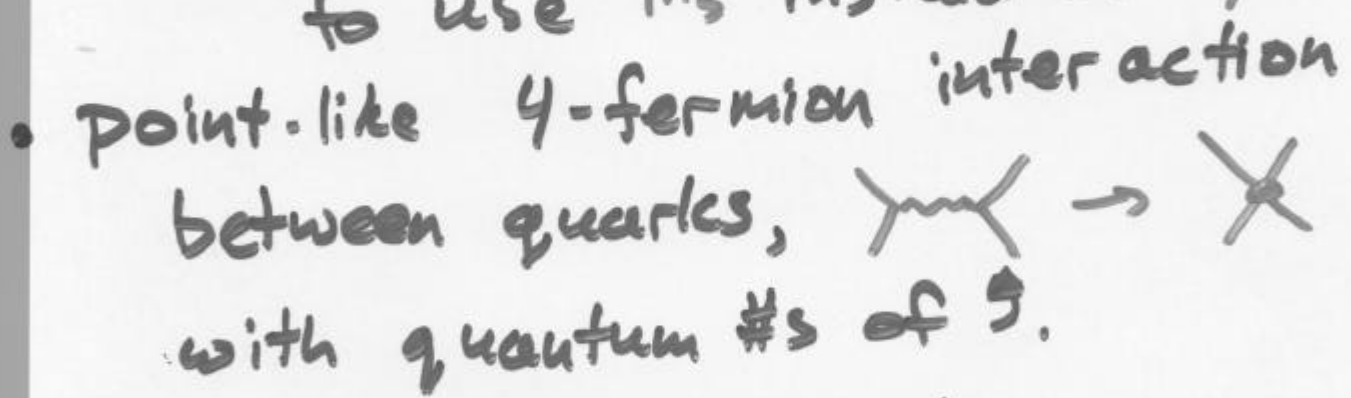 to use
• point-like 4-fermion interaction
between quarks, →
with quantum #s of g.